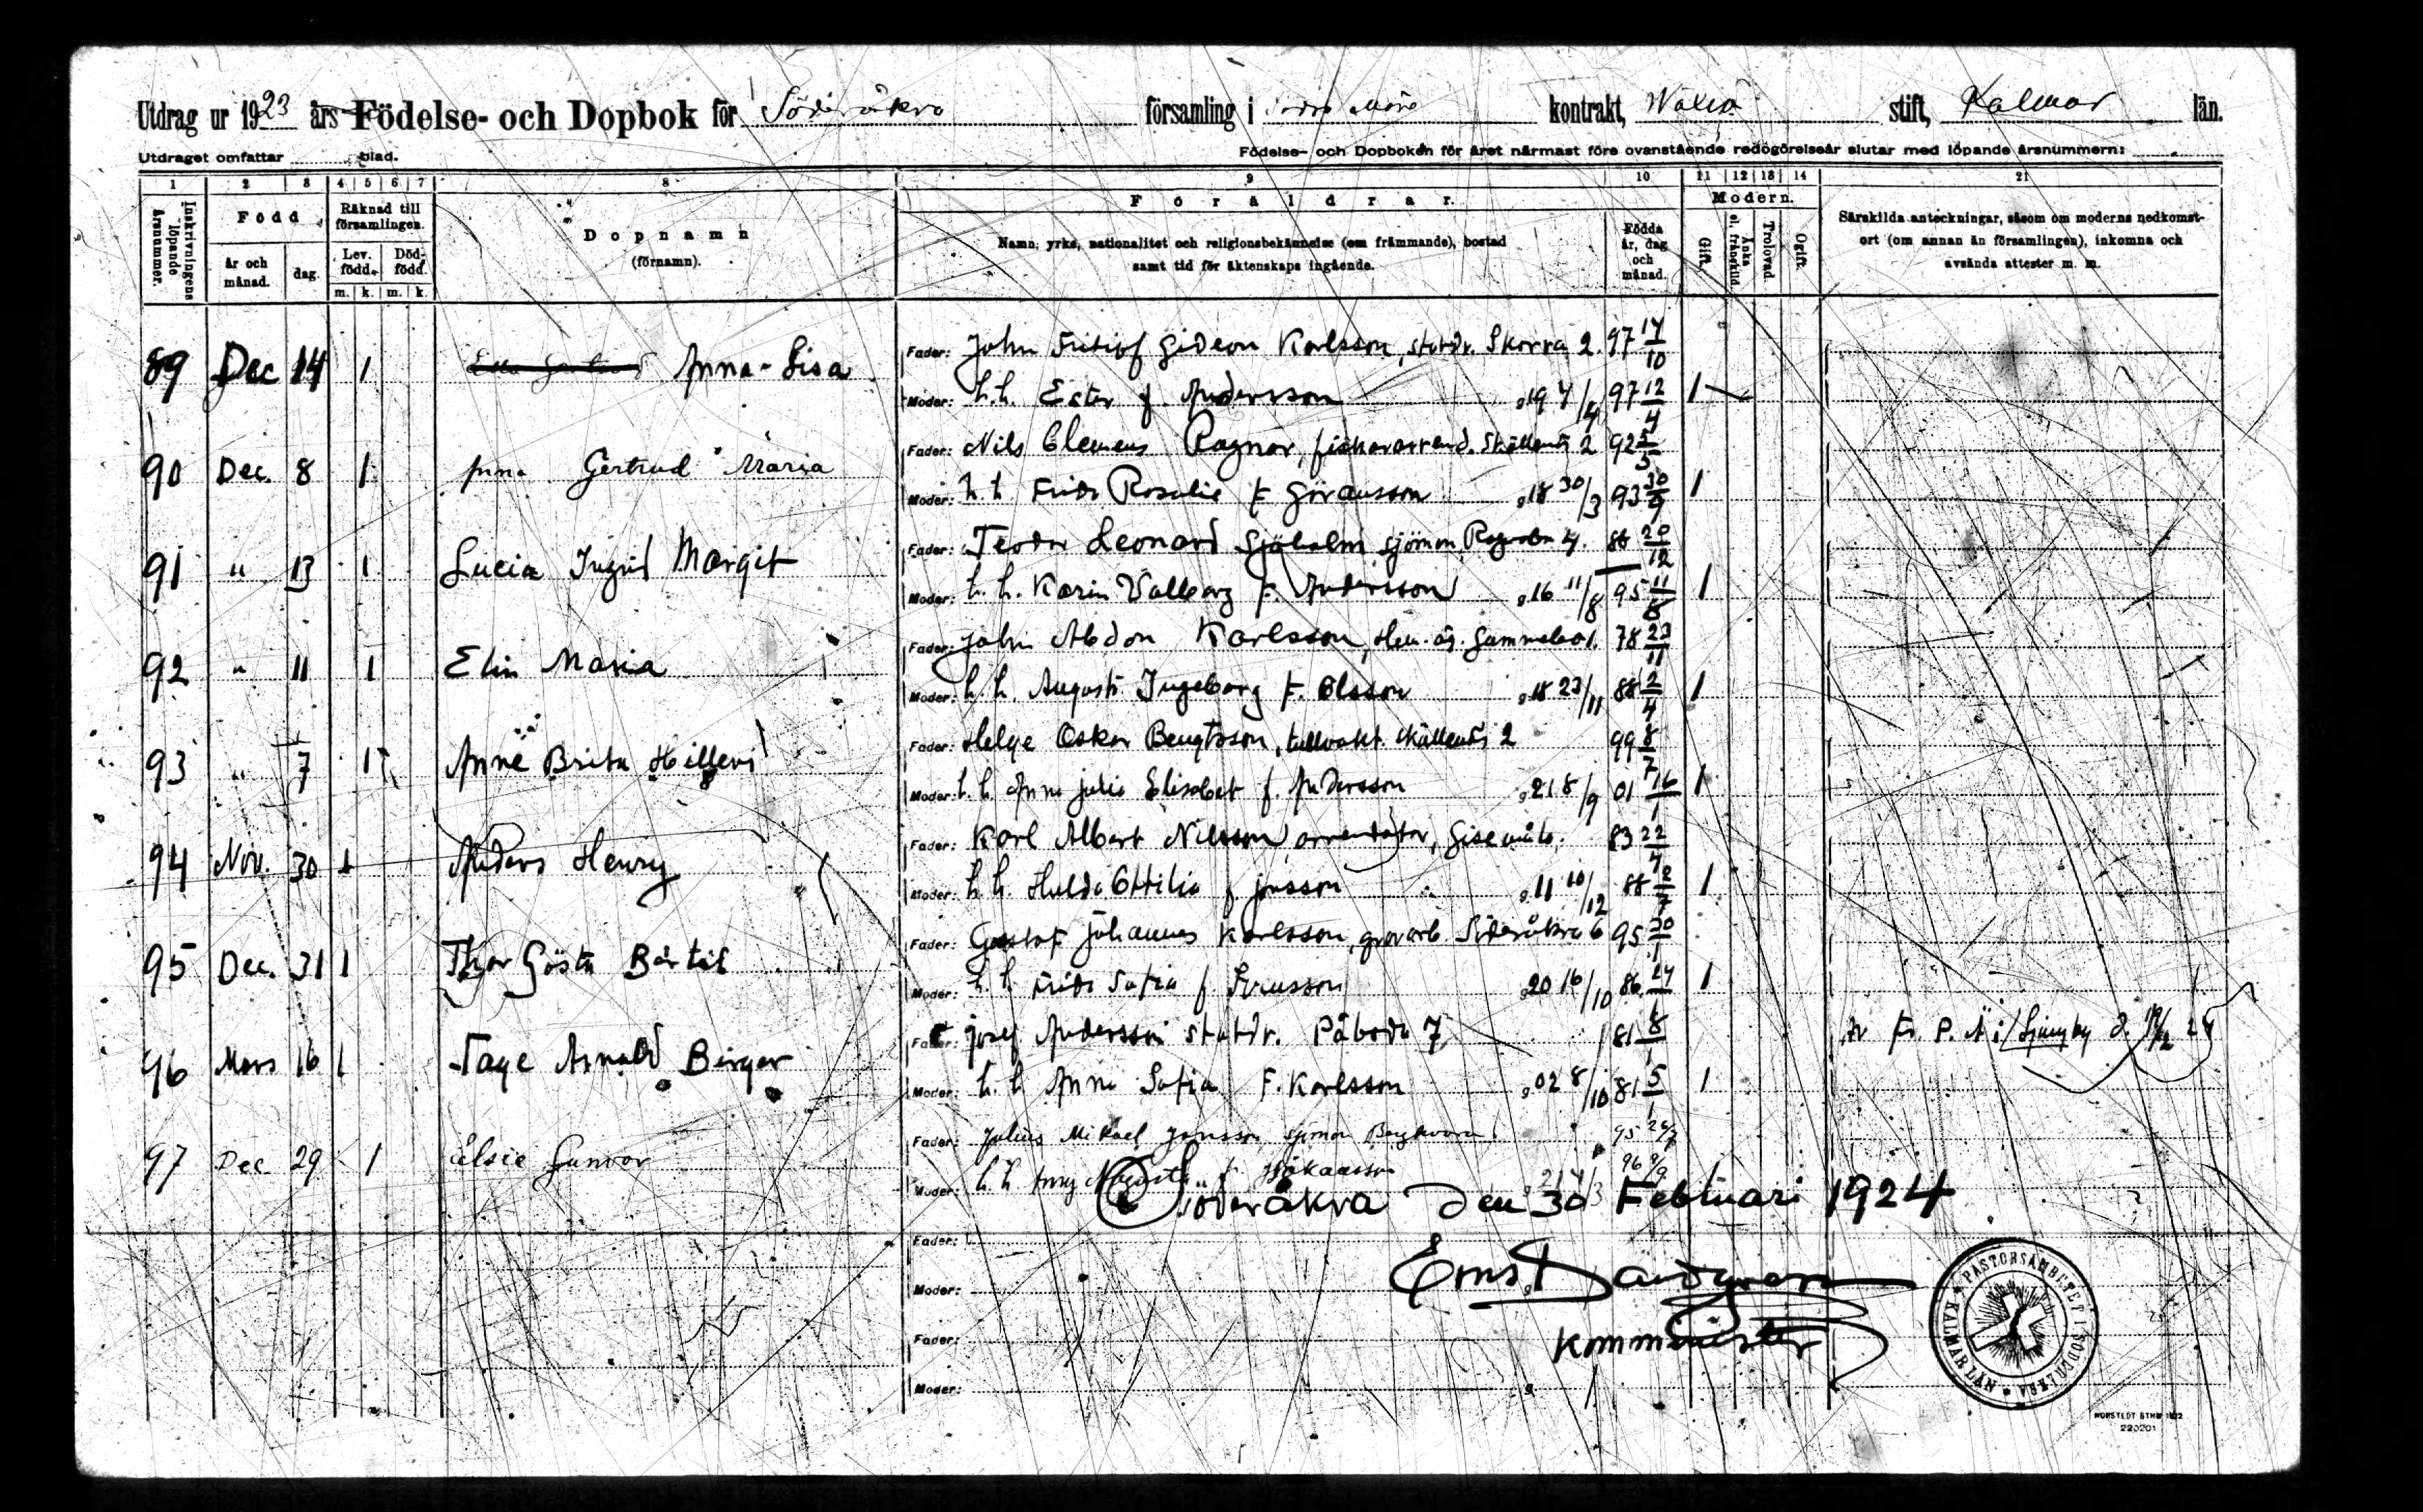 Utdrag ur 1923 års Födelse- och Dopbok för Söderåkra församling i Södra Möre kontrakt, Wäxiö stift, Kalmar län.
Utdraget omfattar blad. Födelse- och Dopboken för året närmast före ovanstående redogörelseår slutar med löpande årsnummern:
1 2 3 4 5 6 7 8 9 10 11 12 13 14 21
Inskrivningens löpande årsnummer.
Född
år och månad. dag.
Räknad till församlingen.
Lev. född. Död- född.
m. k. m. k.
Dopnamn
(förnamn).
Föräldrar.
Namn, yrke, nationalitet och religionsbekännelse (om främmande), bostad
samt tid för äktenskaps ingående.
Födda år, dag och månad.
Modern.
Gift. Änka el. frånskild. Trolovad. Ogift.
Särskilda anteckningar, såsom om moderns nedkomst-
ort (om annan än församlingen), inkomna och
avsända attester m. m.
Fader: John Fritiof Gideon Karlsson, statdr. Skorra 2. 97 14/10
89 Dec 14 1 Anna-Lisa
Moder: h.h. Ester f. Andersson g 19 4/4 97 12/4 1
Fader: Nils Clemens Ragnar, fiskararrend. Skällenäs 2 92 5/5
90 Dec. 8 1 Anna Gertrud Maria
Moder: h.h. Frida Rosalie f. Göransson g 18 30/3 93 30/9 1
Fader: Teodor Leonard Sjöholm sjöman 4. 88 20/12
91 " 13 1 Lucia Ingrid Margit
Moder: h.h. Karin Valborg f. Andersson g 16 11/8 95 11/8 1
Fader: John Abdon Karlsson, Hem. äg. Gammelbo 1. 78 23/11
92 " 11 1 Elin Maria
Moder: h.h. Augusta Ingeborg f. Olsson g 18 23/11 88 2/4 1
Fader: Helge Oskar Bengtsson, tullvakt. Skällenäs 2 99 8/7
93 " 7 1 Anne Brita Hillevi
Moder: h.h. Anna Julia Elisabet f. Andersson g 21 8/9 01 16/1 1
Fader: Karl Albert Nilsson, arrendator, 83 22/4
94 Nov. 30 1 Anders Henry
Moder: h.h. Hulda Ottilia f. Jonsson g 11 10/12 88 12/7 1
Fader: Gustaf Johannes Karlsson, grovarb Söderåkra 6 95 30/1
95 Dec. 31 1 Thor Gösta Bertil
Moder: h.h. Frida Sofia f. Svensson g 20 16/10 86 24/1 1
Fader: Josef Andersson statdr. Påboda 7 81 8/1
96 Mars 16 1 Tage Arnold Birger
Moder: h.h. Anna Sofia f. Karlsson g 02 8/10 81 5/1 1
Fader: Julius Mikael Jonsson, sjöman Bergkvara 95 26/7
97 Dec 29 1 Elsie Gunvor
Moder: h.h. Anny Augusta f. Håkansson g 21 4/3 96 9/9
Söderåkra den 30 Februari 1924
Fader:
Moder: g
Ernst Sandgren
Fader:
Komminister
Moder: g
PASTORSÄMBETET I SÖDERÅKRA KALMAR LÄN
NORSTEDT STHM 1922
220201